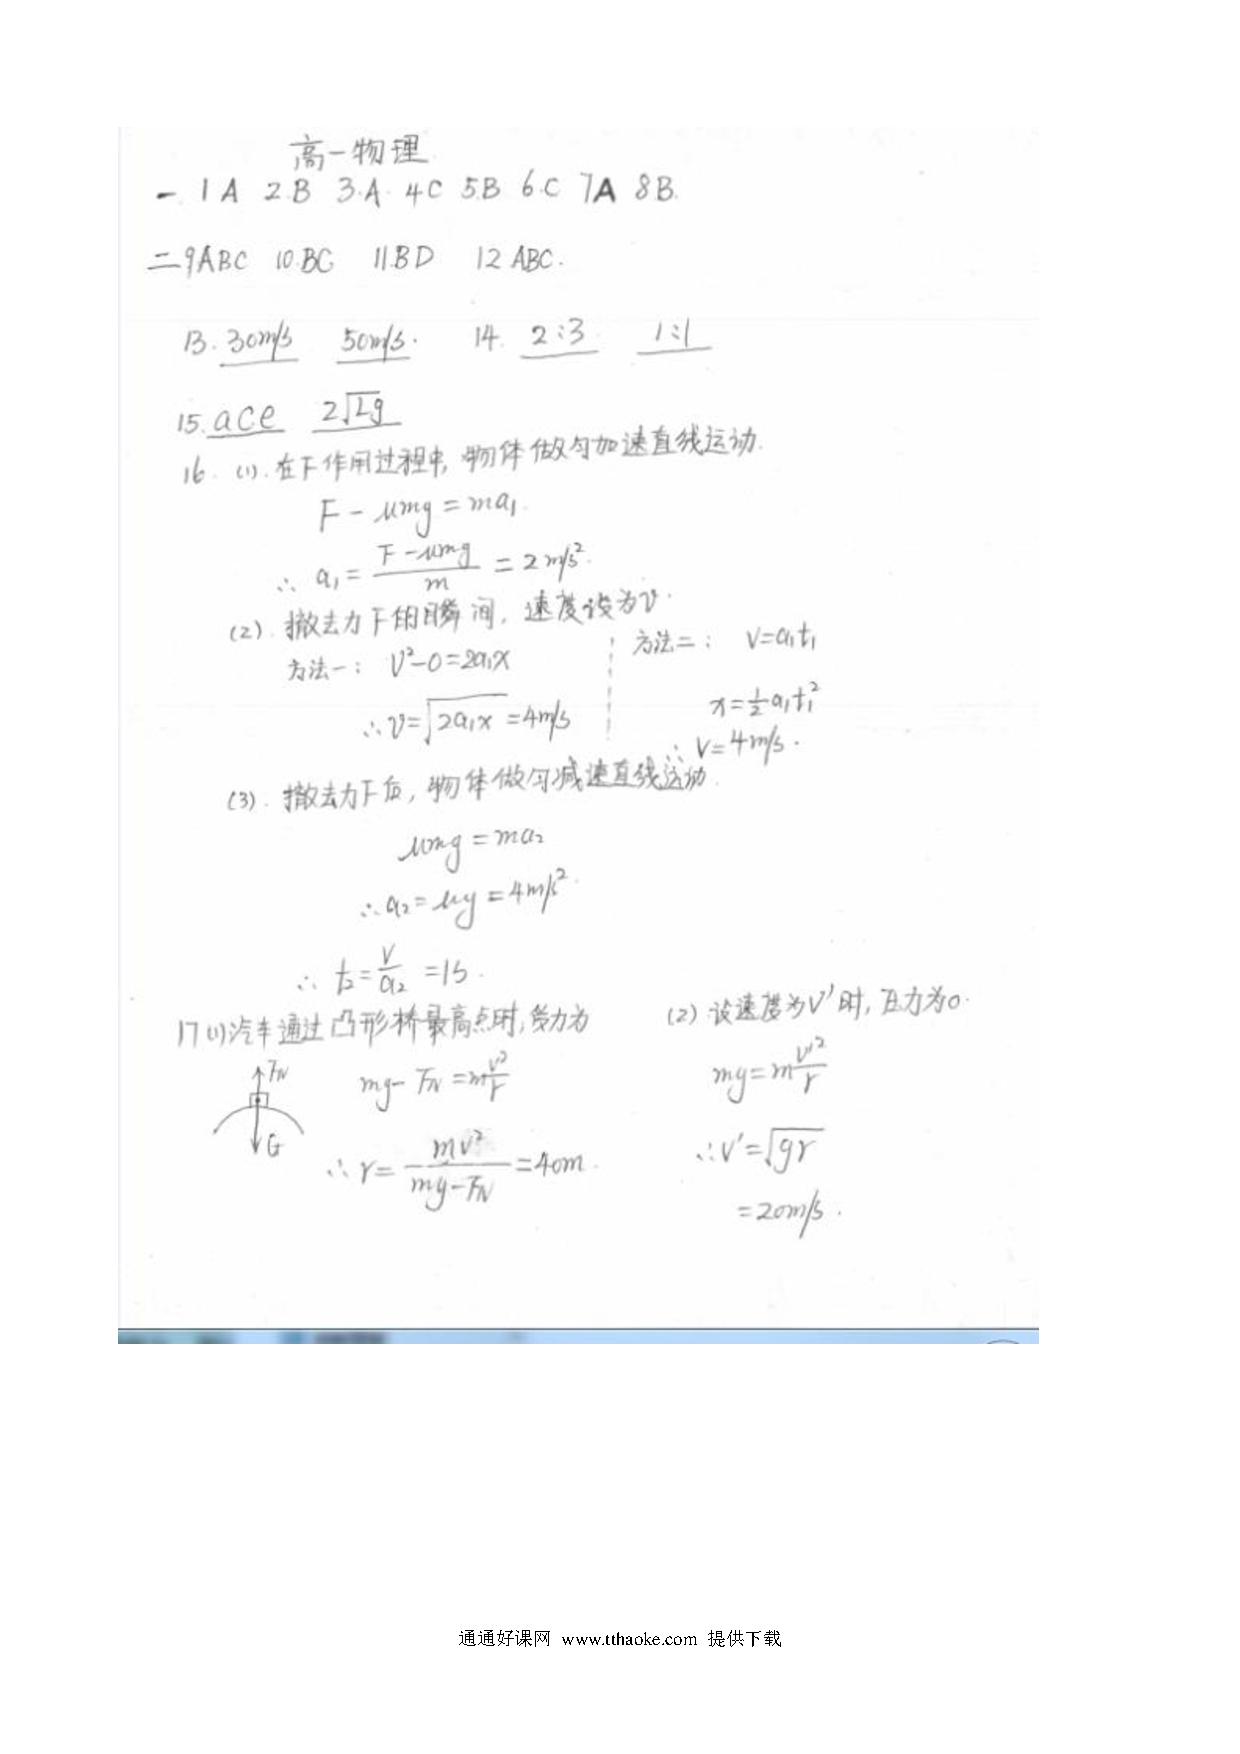 高一物理
一. 1 A 2.B 3.A. 4C 5.B 6.C 7A 8B.
二.9ABC 10.BC 11.BD 12 ABC.
13. 30m/s 50m/s. 14. 2:3 1:1
15. ace 2√Lg
16. (1). 在F作用过程中, 物体做匀加速直线运动.
F - μmg = ma₁.
∴ a₁ = (F-μmg)/m = 2m/s².
(2). 撤去力F的瞬间, 速度设为v.
方法一: V²-0=2a₁x
∴ v=√2a₁x =4m/s
方法二: V=a₁t₁
x=½a₁t₁²
∴ V=4m/s.
(3). 撤去力F后, 物体做匀减速直线运动.
μmg = ma₂
∴ a₂ = μg = 4m/s².
∴ t₂ = V/a₂ = 1s.
17 (1)汽车通过凸形桥最高点时, 受力为
FN
G
mg- FN = mv²/r
∴ r = mv²/(mg-FN) = 40m.
(2) 设速度为V'时, 压力为0.
mg = mv'²/r
∴ V' = √gr
= 20m/s.
通通好课网 www.tthaoke.com 提供下载